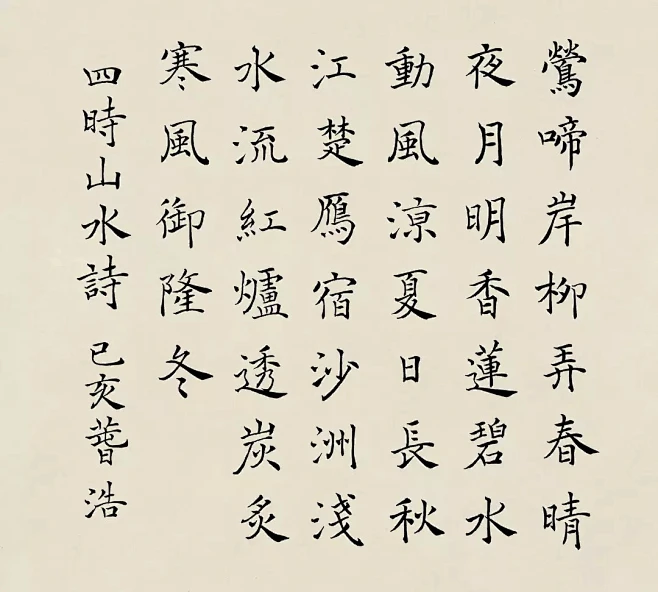 鶯啼岸柳弄春晴
夜月明香蓮碧水
動風涼夏日長秋
江楚鴈宿沙洲淺
水流紅爐透炭炙
寒風御隆冬
四時山水詩 己亥浩